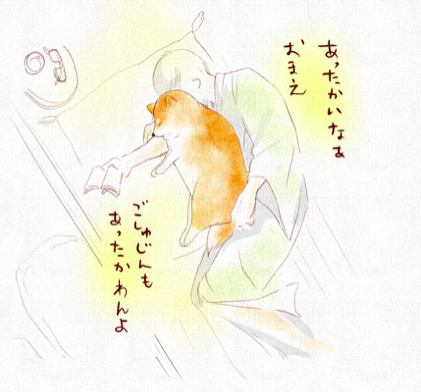 あったかいなぁ
おまえ
ごしゅじんも
あったかわんよ